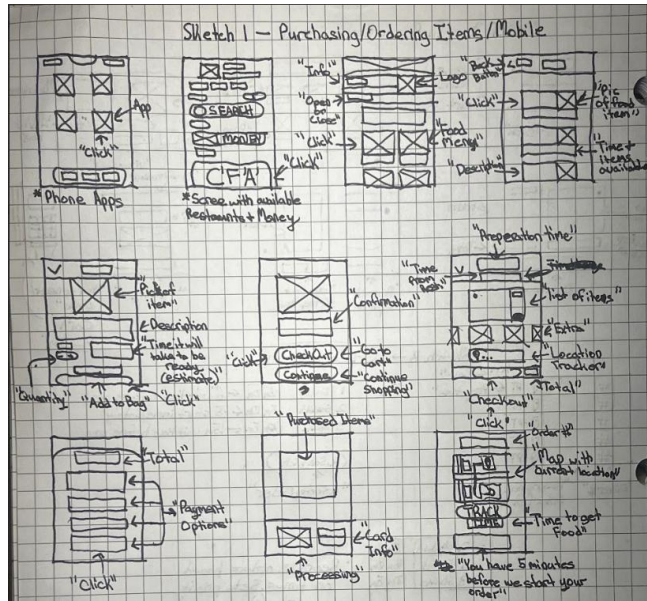 Sketch 1 - Purchasing/Ordering Items/Mobile
App
"Click"
*Phone Apps
SEARCH
MONEY
CFA
"Click"
*Scree with available
Restaurants + Money
"Info"
"Open
or
Close"
"Click"
Logo
"Food
Menu"
"Back
Button"
"Click"
"Description"
"Pic
of food
item"
"Time +
items
available"
"Pick of
item"
Description
"Time it will
take to be
ready
(estimate)"
"Quantity"
"Add to Bag"
"Click"
"Confirmation"
CheckOut
Continue
"Click"
"Go to
Cart"
"Continue
Shopping"
"Preperation time"
"Time
from
"list of items"
"Extra"
"Location
Tracker"
"Total"
"Checkout"
"Click"
"Total"
"Payment
Options"
"Click"
"Purchased Items"
"Card
Info"
"Processing"
"Order #"
"Map with
current location"
TRACK
TIME
"Time to get
Food"
"You have 5 minutes
before we start your
order"